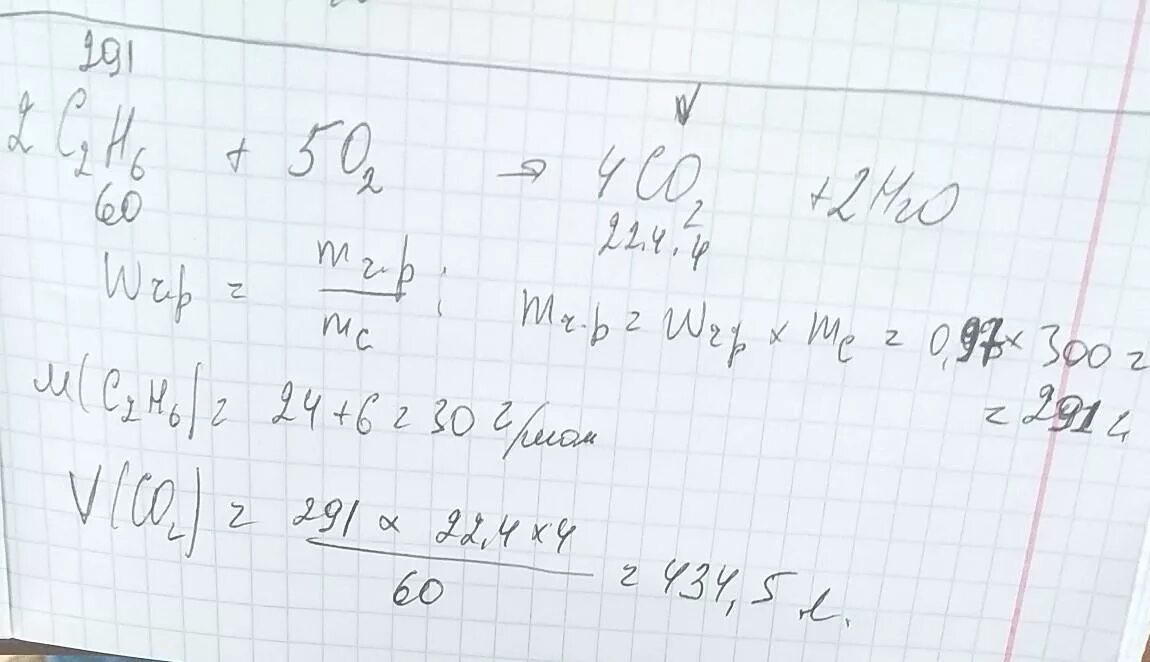 291
2C₂H₆ + 5O₂ → 4CO₂ + 2H₂O
60 22,4 · 4
Wч.р = mч.р / mс ; mч.р = Wч.р × mс = 0,97 × 300 =
= 291 г
M(C₂H₆) = 24 + 6 = 30 г/моль
V(CO₂) = 291 × 22,4 × 4 / 60 = 434,5 л.